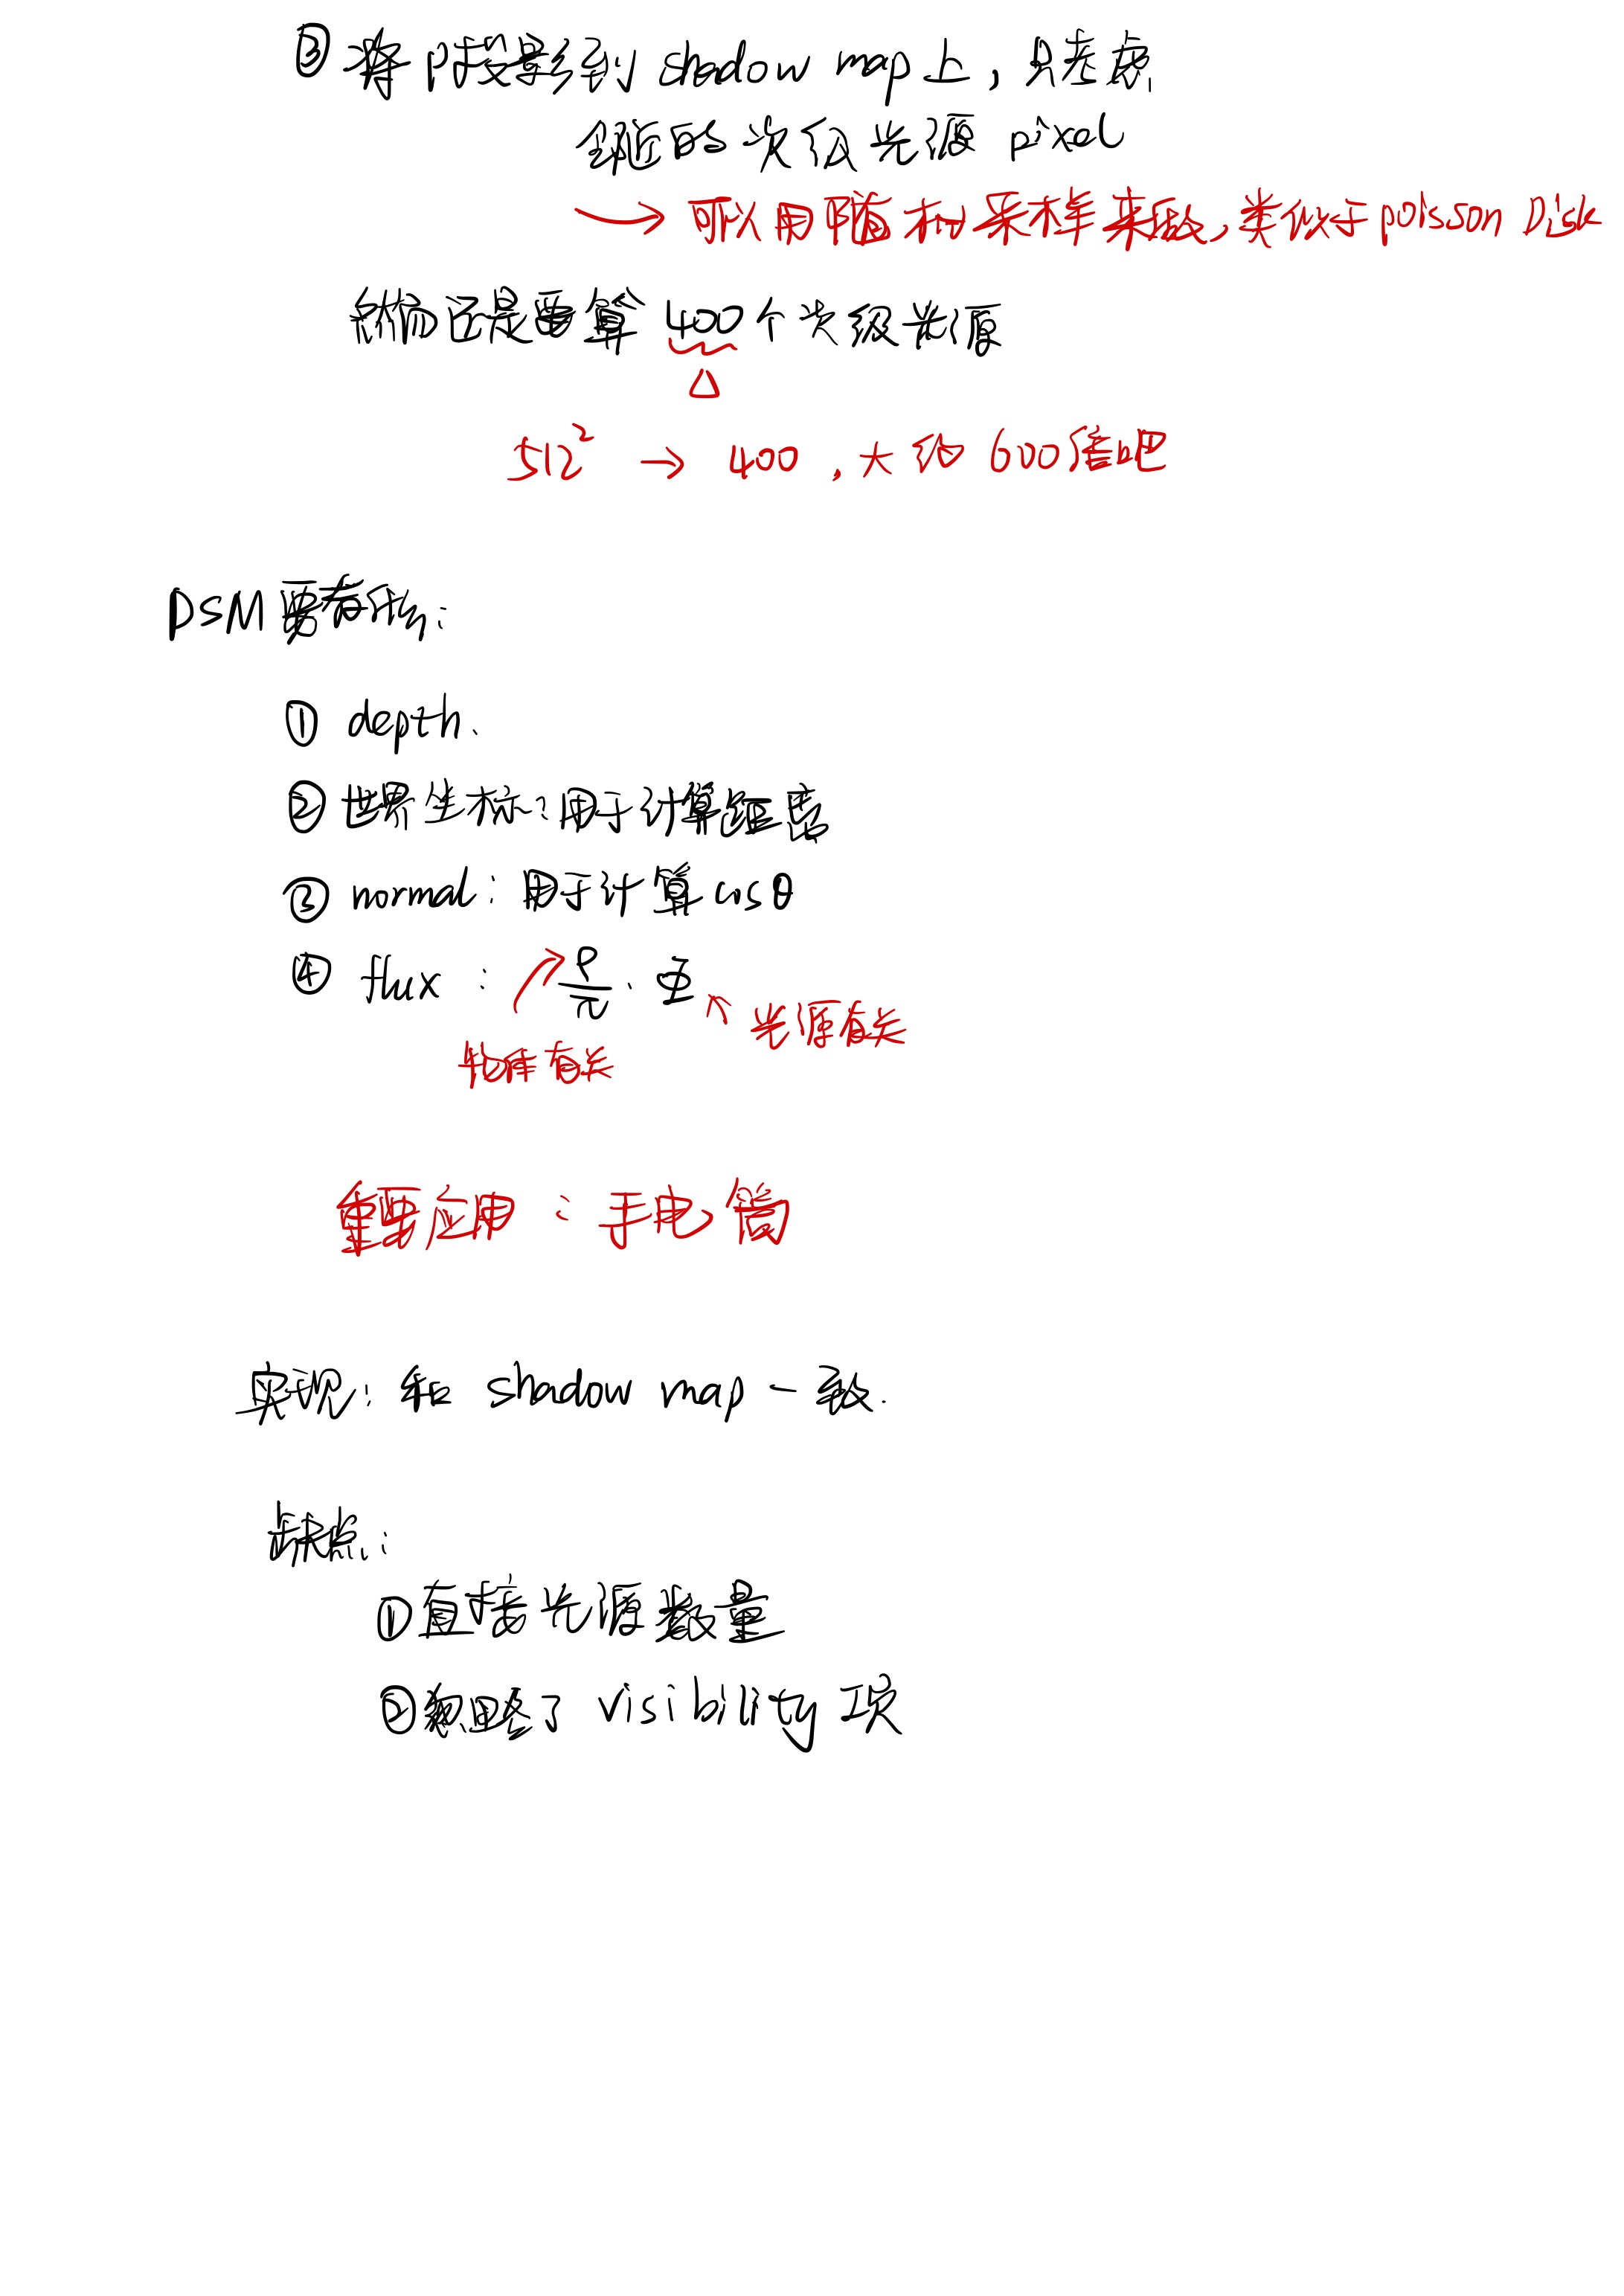 ③ 将P投影到 shadow map 上，只考虑
邻近的次级光源 pixel
→ 可以用随机采样来做，类似于 poisson Disk
然而还是要算 400个次级光源
△
512² → 400，大约 600倍吧
DSM 要存储：
① depth、
② 世界坐标：用于计算距离
③ normal：用于计算 cosθ
④ flux： ρ/π · Φ
光源有关
物体有关
重要应用：手电筒
实现：和 shadow map 一致.
缺点：
① 直接光源数量
② 忽略了 visibility 项